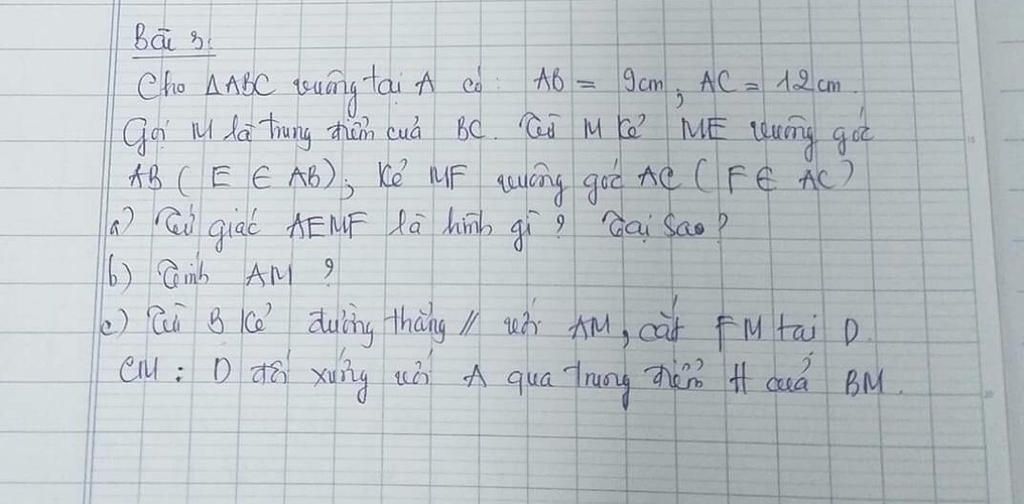 Bài 3:
Cho ΔABC vuông tại A có: AB = 9cm, AC = 12cm.
Gọi M là trung điểm của BC. Từ M kẻ ME vuông góc
AB (E ∈ AB); kẻ MF vuông góc AC (F ∈ AC)
a) Tứ giác AEMF là hình gì? Tại sao?
b) Tính AM?
c) Từ B kẻ đường thẳng // với AM, cắt FM tại D.
CM: D đối xứng với A qua trung điểm H của BM.